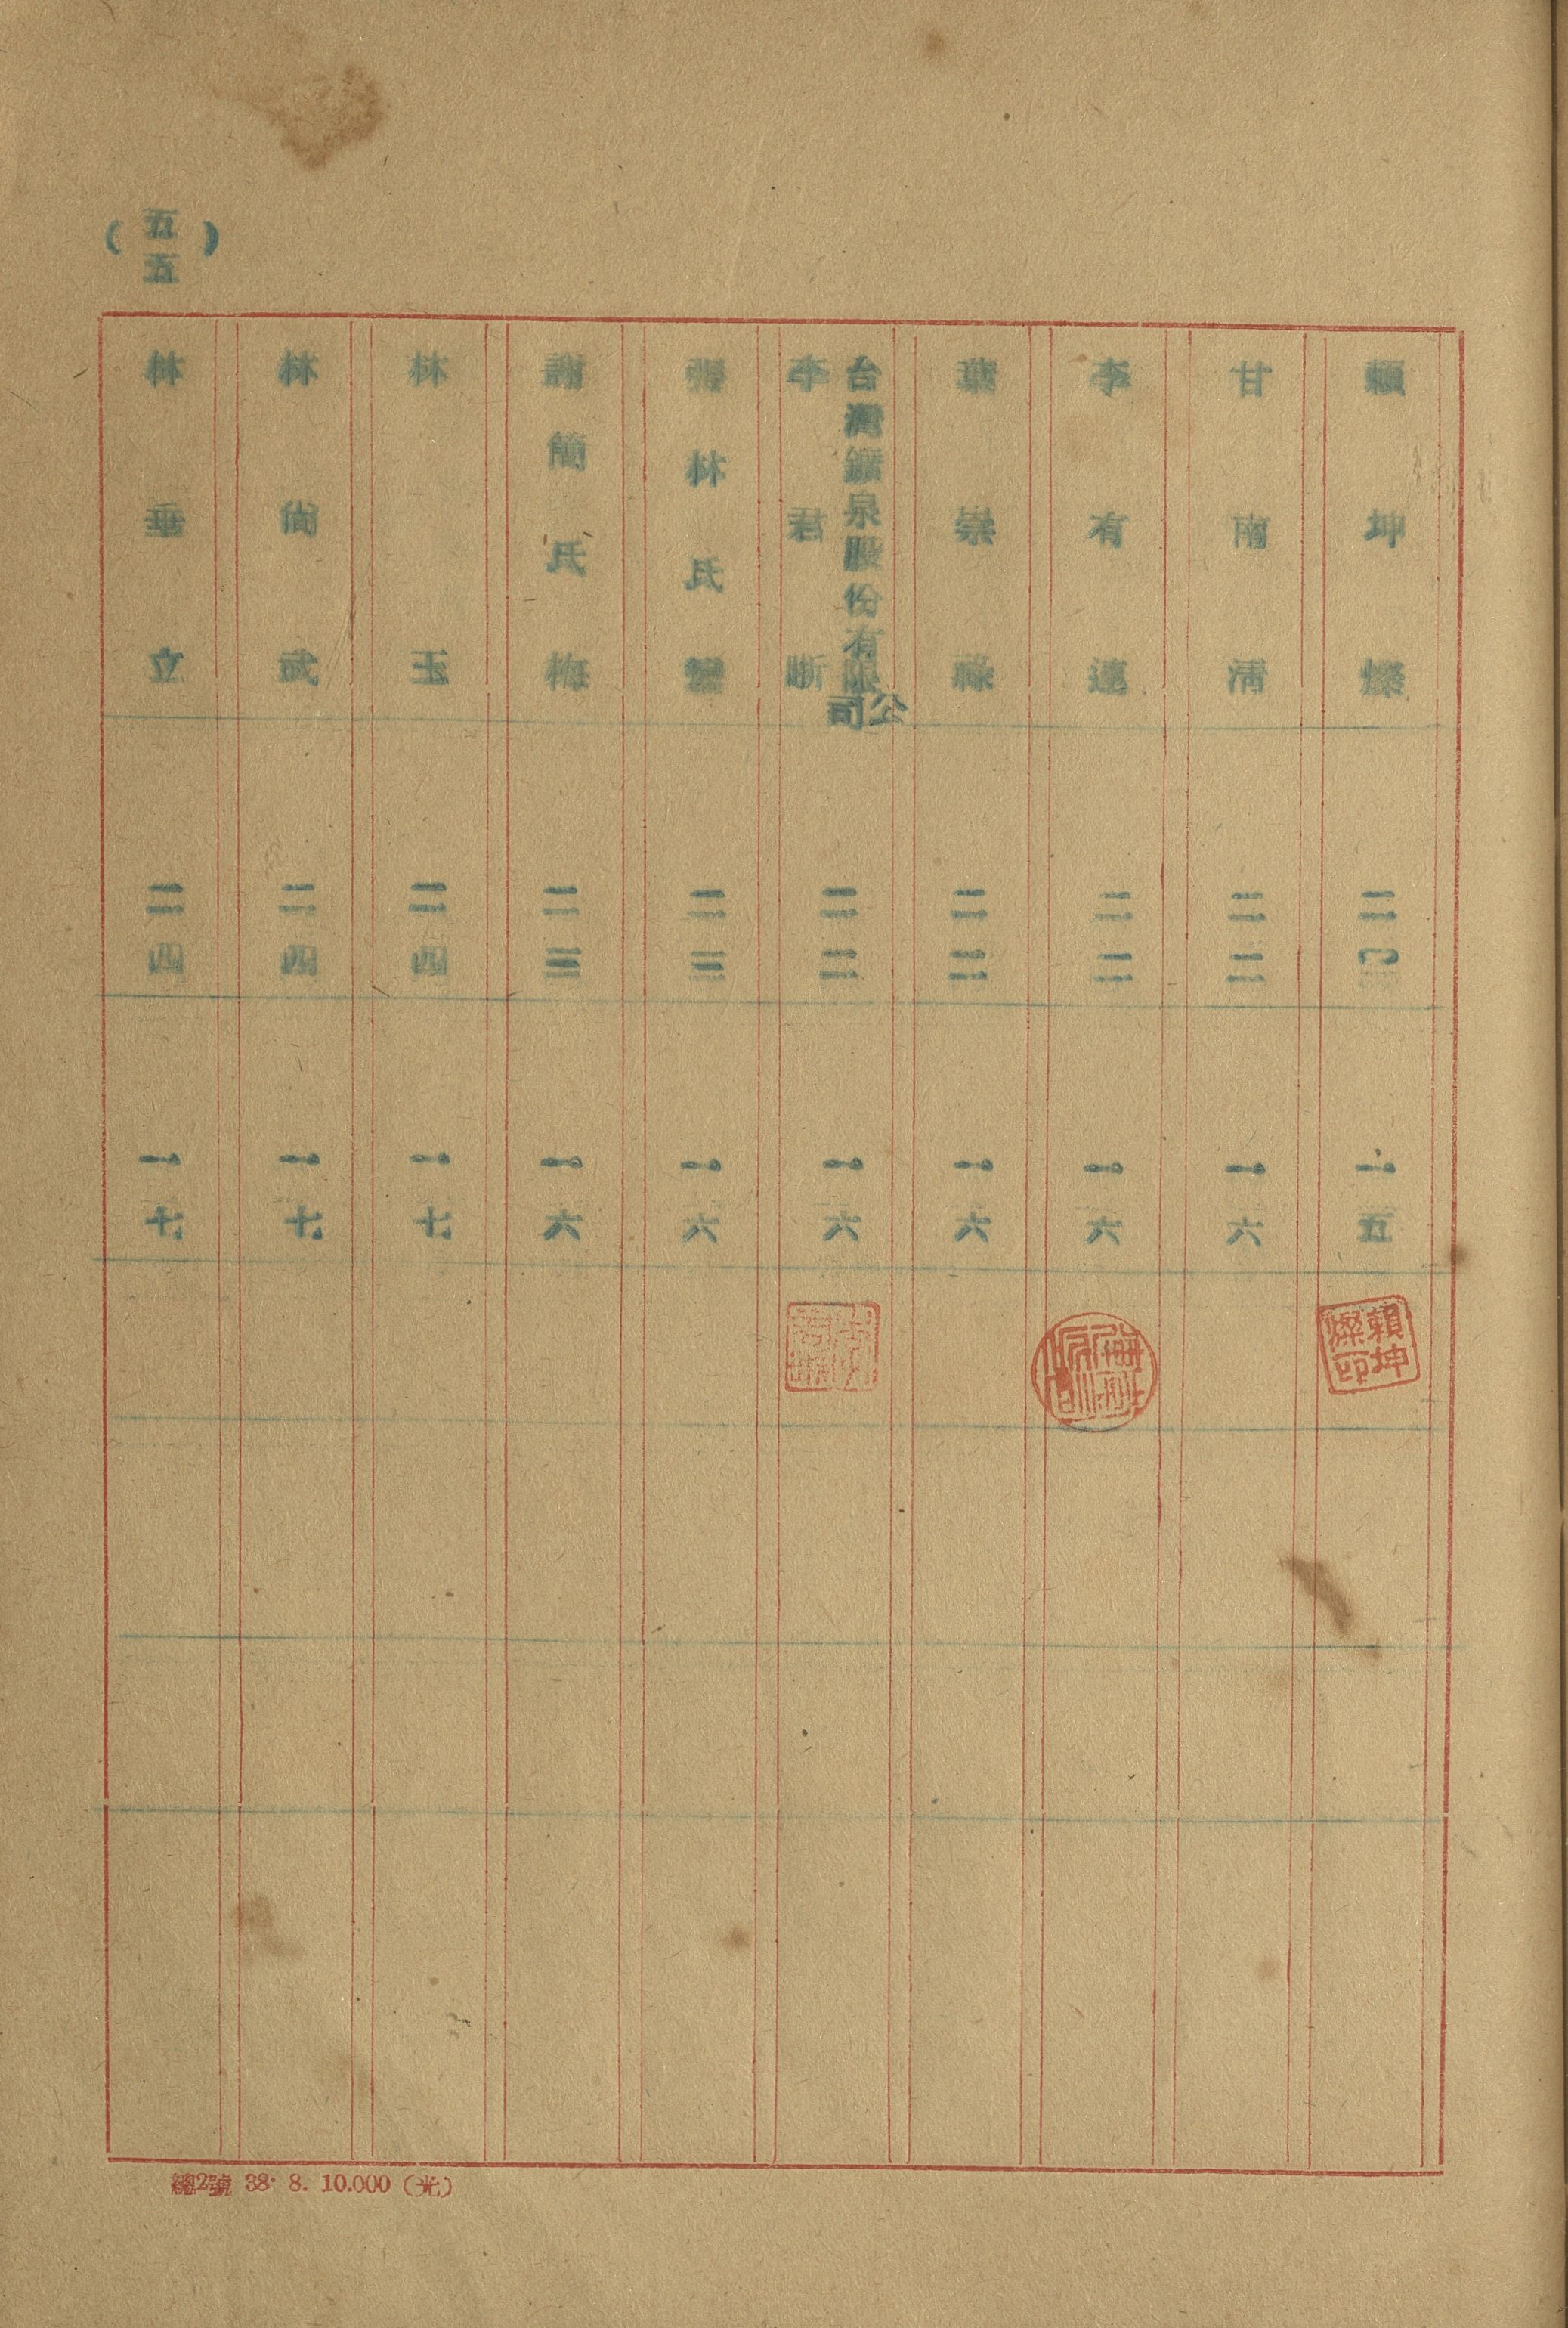 賴坤燦 一五 賴坤燦印
甘南清 二二 一六
李有 二二 一六
葉崇祿 二二 一六
台灣鑛泉股份有限公司
李君晣 二二 一六
張林氏 二三 一六
謝簡氏梅 二三 一六
林玉 二四 一七
林尚武 二四 一七
林垂立 二四 一七
(五五)
總2號 38. 8. 10.000 (光)